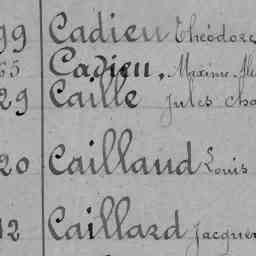 99 Cadieu Théodore
65 Cadieu, Maxime Ale
29 Caille Jules Cha
20 Caillaud Louis
12 Caillard Jacques